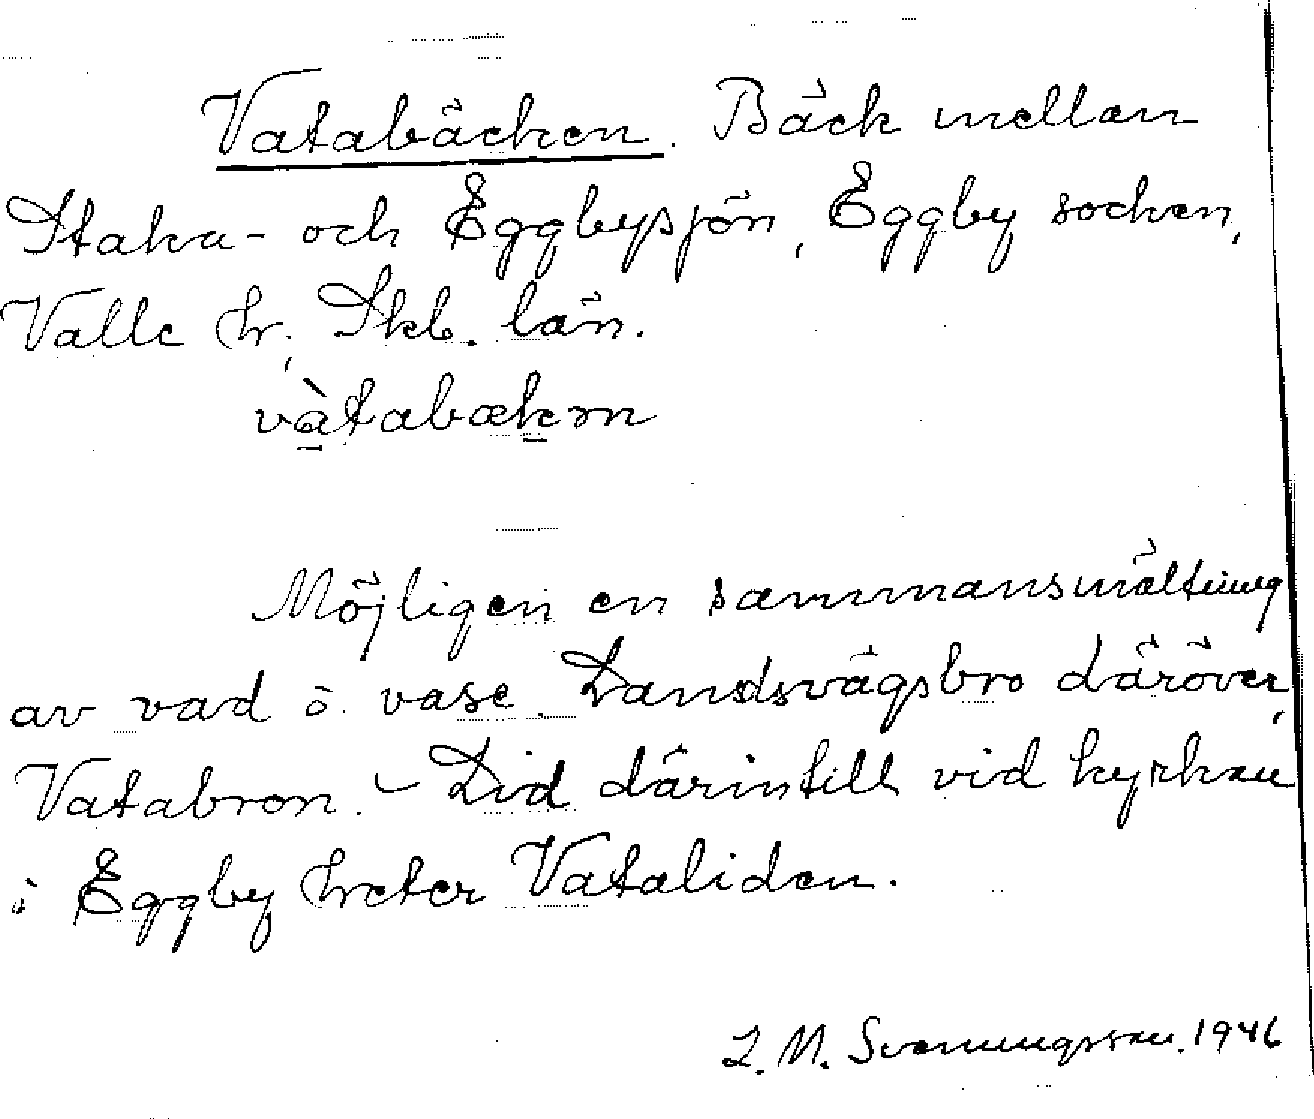 Vatabäcken. Bäck mellan
Staka- och Eggbysjön, Eggby socken,
Valle hr, Skb. län.
vàtabækən
Möjligen en sammansmältning
av vad o. vase. Landsvägsbro däröver,
Vatabron. - Lid därintill vid kyrkan
i Eggby heter Vataliden.
L. M. Svenungsson. 1946